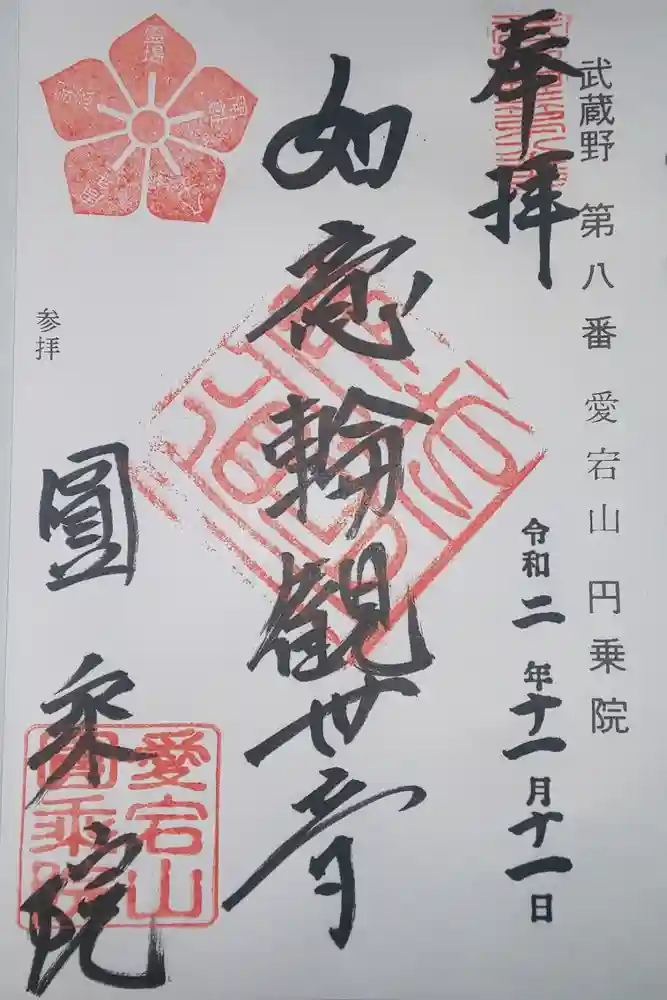 武蔵野 第八番 愛宕山 円乗院
奉拝
令和二年十一月十一日
如意輪観世音
参拝
圓乗院
愛宕山
圓乘院
霊場